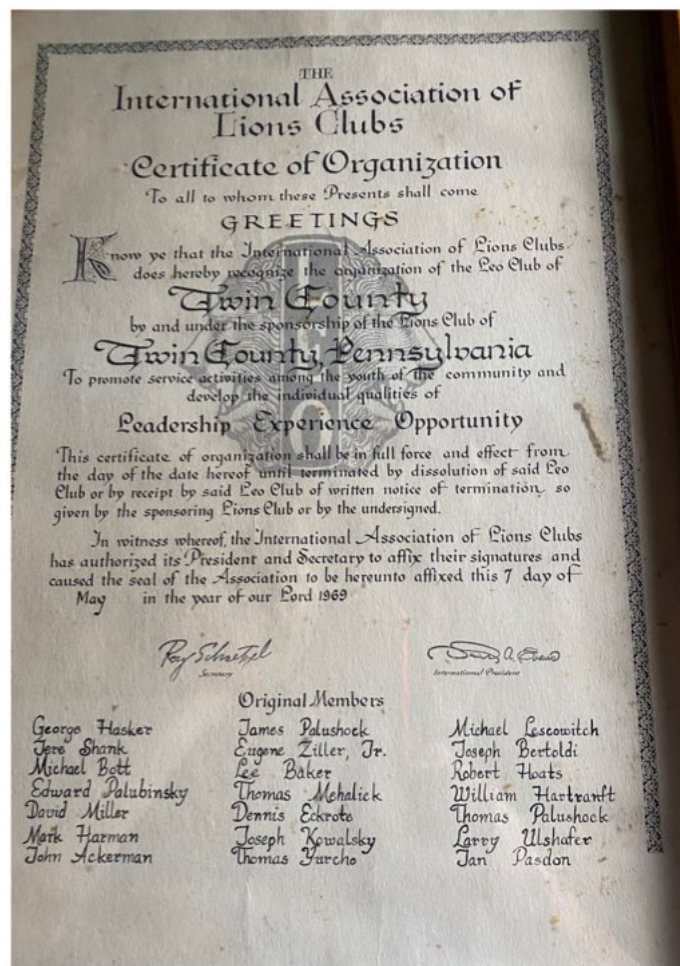 THE
International Association of
Lions Clubs
Certificate of Organization
To all to whom these Presents shall come
GREETINGS
Know ye that the International Association of Lions Clubs
does hereby recognize the organization of the Leo Club of
Twin County
by and under the sponsorship of the Lions Club of
Twin County, Pennsylvania
To promote service activities among the youth of the community and
develop the individual qualities of
Leadership Experience Opportunity
This certificate of organization shall be in full force and effect from
the day of the date hereof until terminated by dissolution of said Leo
Club or by receipt by said Leo Club of written notice of termination so
given by the sponsoring Lions Club or by the undersigned.
In witness whereof, the International Association of Lions Clubs
has authorized its President and Secretary to affix their signatures and
caused the seal of the Association to be hereunto affixed this 7 day of
May in the year of our Lord 1969
Roy Schaetzel
A. Evans
Secretary
International President
Original Members
George Hasker James Palushock Michael Lescowitch
Jere Shank Eugene Ziller, Jr. Joseph Bertoldi
Michael Bott Lee Baker Robert Hoats
Edward Palubinsky Thomas Mehalick William Hartranft
David Miller Dennis Eckrote Thomas Palushock
Mark Harman Joseph Kowalsky Larry Ulshafer
John Ackerman Thomas Yurcho Jan Pasdon